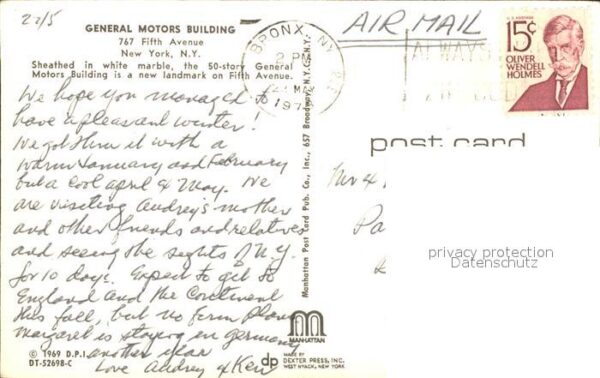 22/5
GENERAL MOTORS BUILDING
767 Fifth Avenue
New York, N.Y.
Sheathed in white marble, the 50-story General
Motors Building is a new landmark on Fifth Avenue.
We hope you managed to
have a pleasant winter!
We got thru it with a
warm January and February
but a cool april & May. We
are visiting Audrey's mother
and other friends and relatives
and seeing the sights of N.Y.
for 10 days. Expect to get to
England and the Continent
this fall, but no firm plans
Margaret is staying in Germany
another year
Love Audrey & Ken
© 1969 D.P.I.
DT-52698-C
Manhattan Post Card Pub. Co., Inc., 657 Broadway, N.Y.C., N.Y.
MANHATTAN
dp MADE BY
DEXTER PRESS, INC.
WEST NYACK, NEW YORK
AIR MAIL
BRONX, NY
PM
MAY
ALWAYS
U.S. POSTAGE
15¢
OLIVER
WENDELL
HOLMES
post card
Mr &
privacy protection
Datenschutz